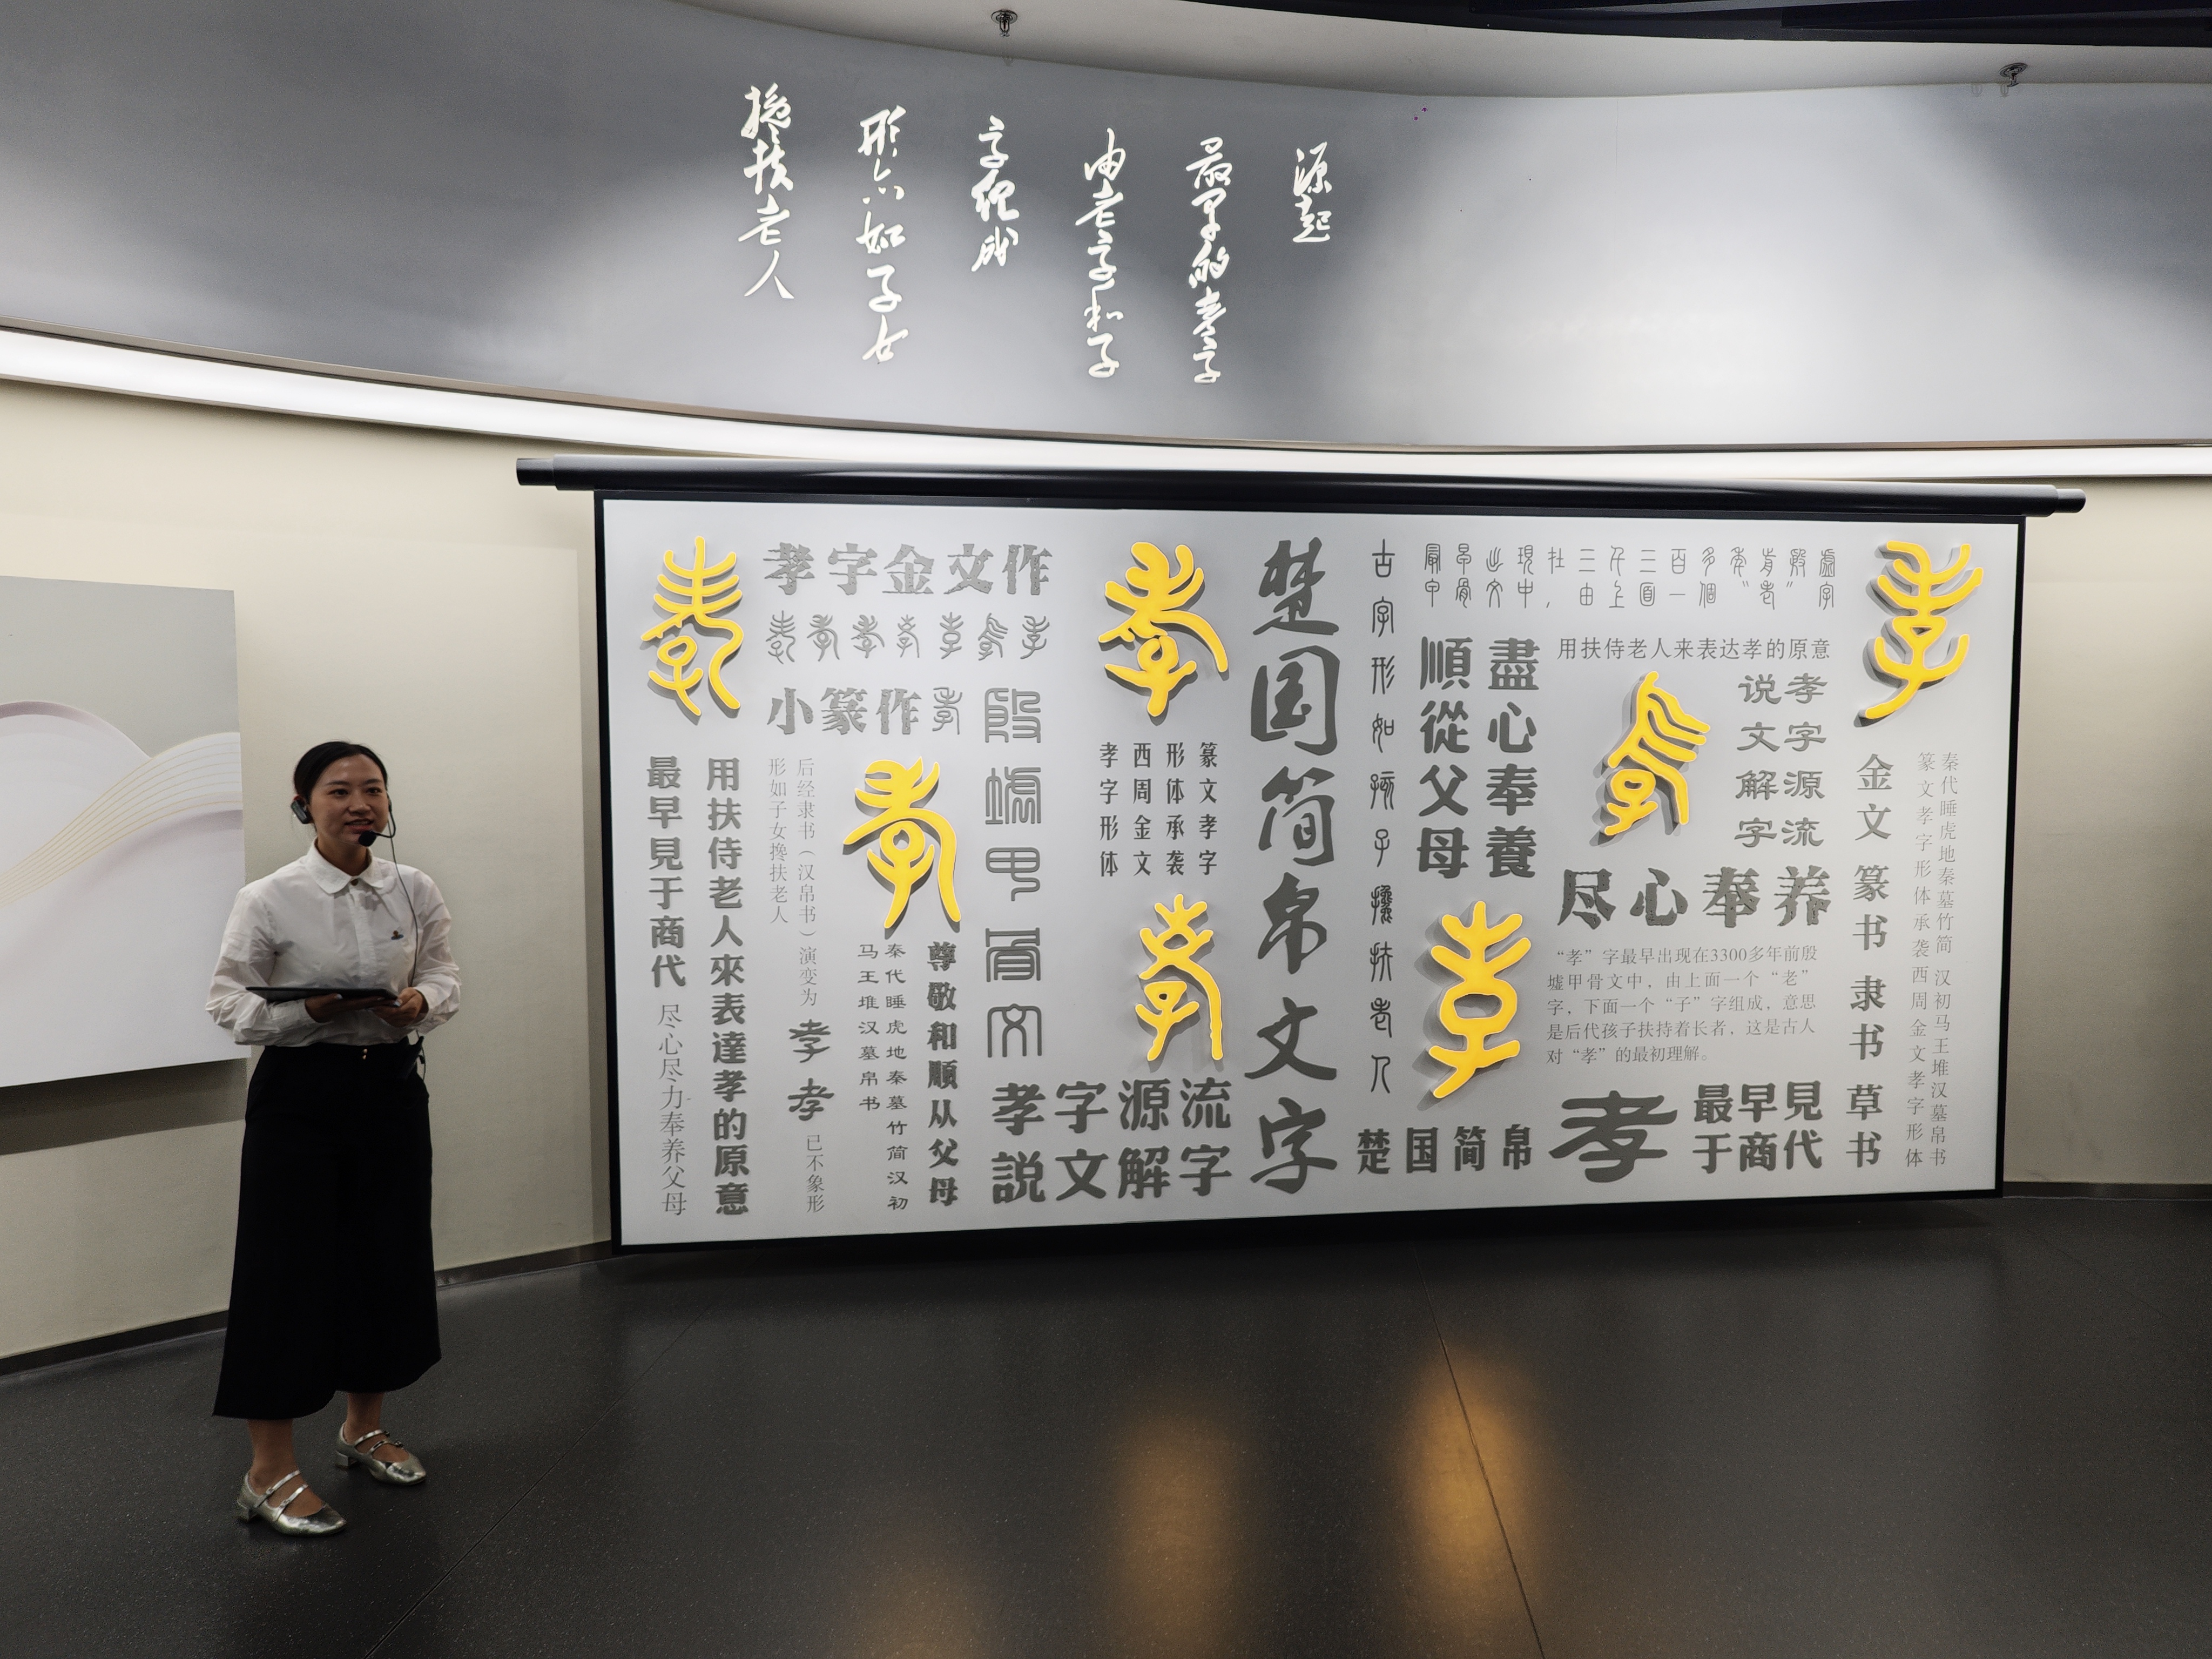 源起
最早的孝字
由老字和子
字组成
如子女
搀扶老人
孝字金文作
小篆作孝
殷墟甲骨文
最早見于商代
尽心尽力奉养父母
用扶侍老人來表達孝的原意
后经隶书（汉帛书）演变为
孝孝
已不象形
形如子女搀扶老人
秦代睡虎地秦墓竹简汉初
马王堆汉墓帛书
尊敬和順从父母
篆文孝字
形体承袭
西周金文
孝字形体
孝字源流
說文解字
楚国简帛文字
古字形如孩子搀扶老人
最早出現在三千三百多年前殷墟
甲骨文中，由上面一個“老”字
盡心奉養
順從父母
用扶侍老人来表达孝的原意
孝字源流
说文解字
尽心奉养
“孝”字最早出现在3300多年前殷
墟甲骨文中，由上面一个“老”
字，下面一个“子”字组成，意思
是后代孩子扶持着长者，这是古人
对“孝”的最初理解。
楚国简帛
孝
最早見
于商代
金文
篆书
隶书
草书
秦代睡虎地秦墓竹简
汉初马王堆汉墓帛书
篆文孝字形体承袭西周金文孝字形体